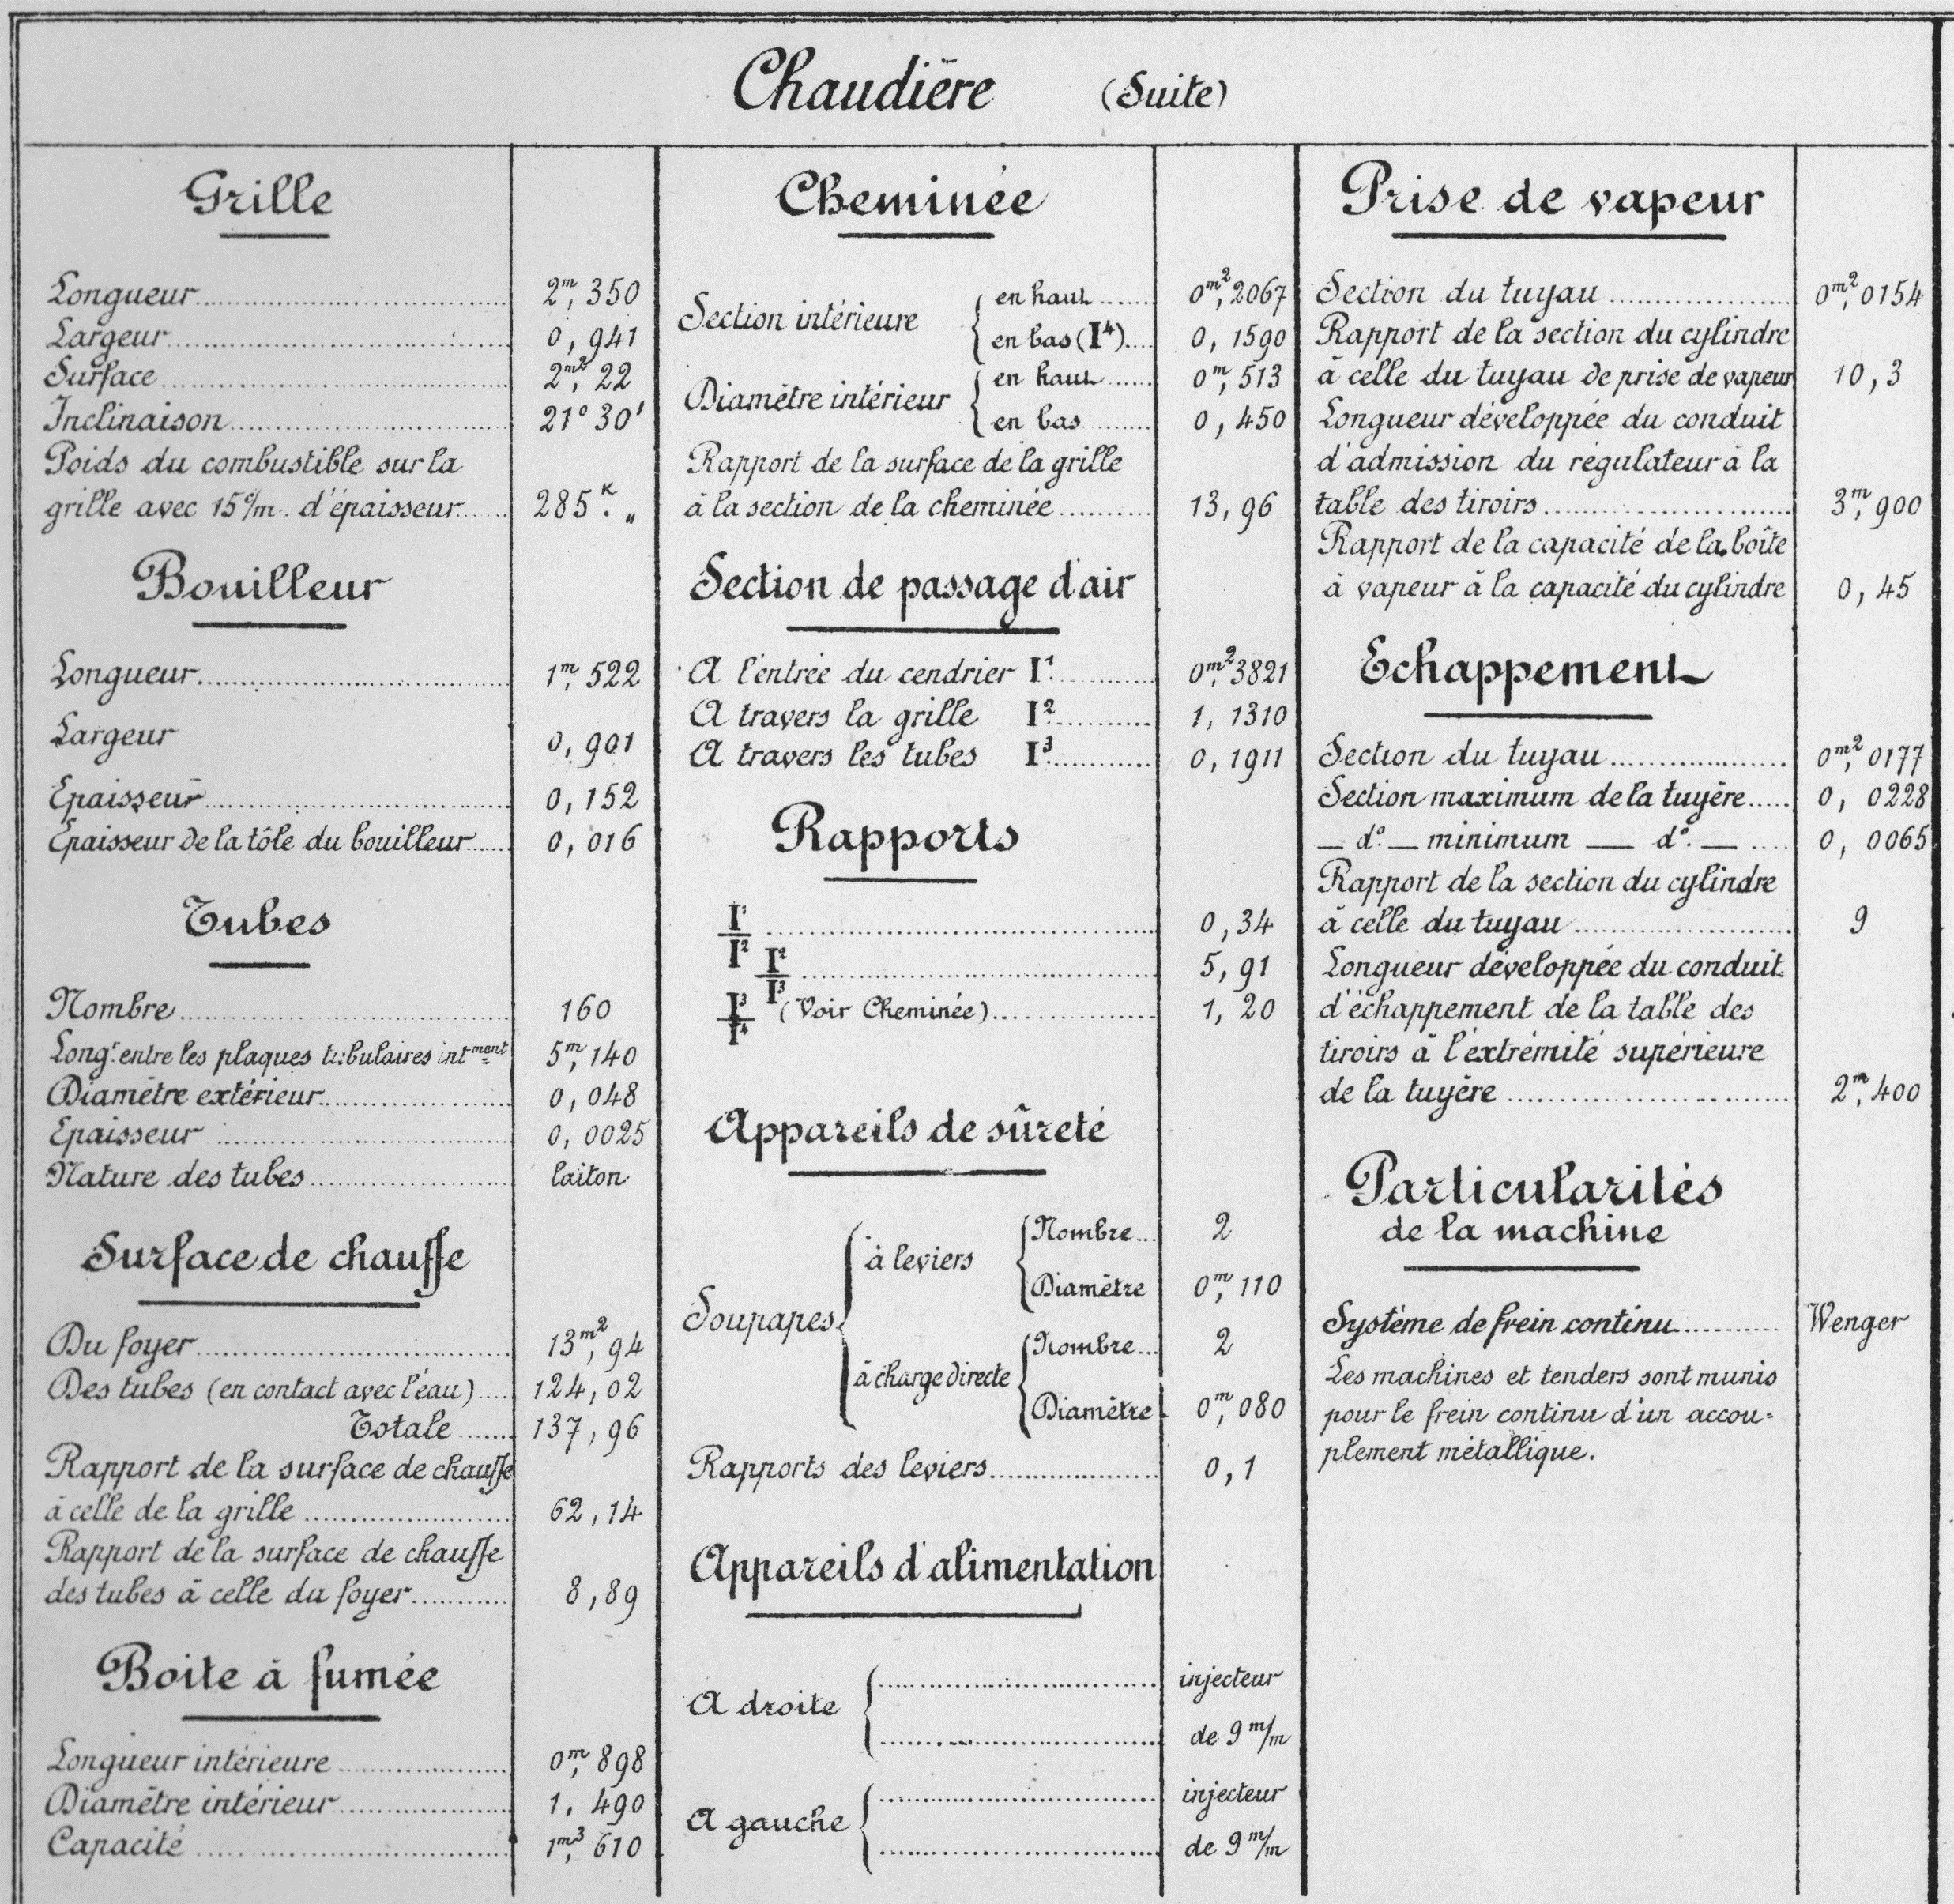 Chaudière (Suite)
Grille
Longueur 2m,350
Largeur 0,941
Surface 2m2,22
Inclinaison 21°30'
Poids du combustible sur la
grille avec 15c/m d'épaisseur 285K. „
Bouilleur
Longueur 1m,522
Largeur 0,901
Epaisseur 0,152
Epaisseur de la tôle du bouilleur 0,016
Tubes
Nombre 160
Longr. entre les plaques tubulaires intment 5m,140
Diamètre extérieur 0,048
Epaisseur 0,0025
Nature des tubes laiton
Surface de chauffe
Du foyer 13m2,94
Des tubes (en contact avec l'eau) 124,02
Totale 137,96
Rapport de la surface de chauffe
à celle de la grille 62,14
Rapport de la surface de chauffe
des tubes à celle du foyer 8,89
Boite à fumée
Longueur intérieure 0m,898
Diamètre intérieur 1,490
Capacité 1m3,610
Cheminée
Section intérieure en haut 0m2,2067
en bas (I4) 0,1590
Diamètre intérieur en haut 0m,513
en bas 0,450
Rapport de la surface de la grille
à la section de la cheminée 13,96
Section de passage d'air
A l'entrée du cendrier I1 0m2,3821
A travers la grille I2 1,1310
A travers les tubes I3 0,1911
Rapports
I1/I2 0,34
I2/I3 5,91
I3/I4 (Voir Cheminée) 1,20
Appareils de sûreté
Soupapes à leviers Nombre 2
Diamètre 0m,110
à charge directe Nombre 2
Diamètre 0m,080
Rapports des leviers 0,1
Appareils d'alimentation
A droite injecteur
de 9 m/m
A gauche injecteur
de 9 m/m
Prise de vapeur
Section du tuyau 0m2,0154
Rapport de la section du cylindre
à celle du tuyau de prise de vapeur 10,3
Longueur développée du conduit
d'admission du régulateur à la
table des tiroirs 3m,900
Rapport de la capacité de la boîte
à vapeur à la capacité du cylindre 0,45
Echappement
Section du tuyau 0m2,0177
Section maximum de la tuyère 0,0228
— do. — minimum — do. — 0,0065
Rapport de la section du cylindre
à celle du tuyau 9
Longueur développée du conduit
d'échappement de la table des
tiroirs à l'extrémité supérieure
de la tuyère 2m,400
Particularités
de la machine
Système de frein continu Wenger
Les machines et tenders sont munis
pour le frein continu d'un accou-
plement métallique.